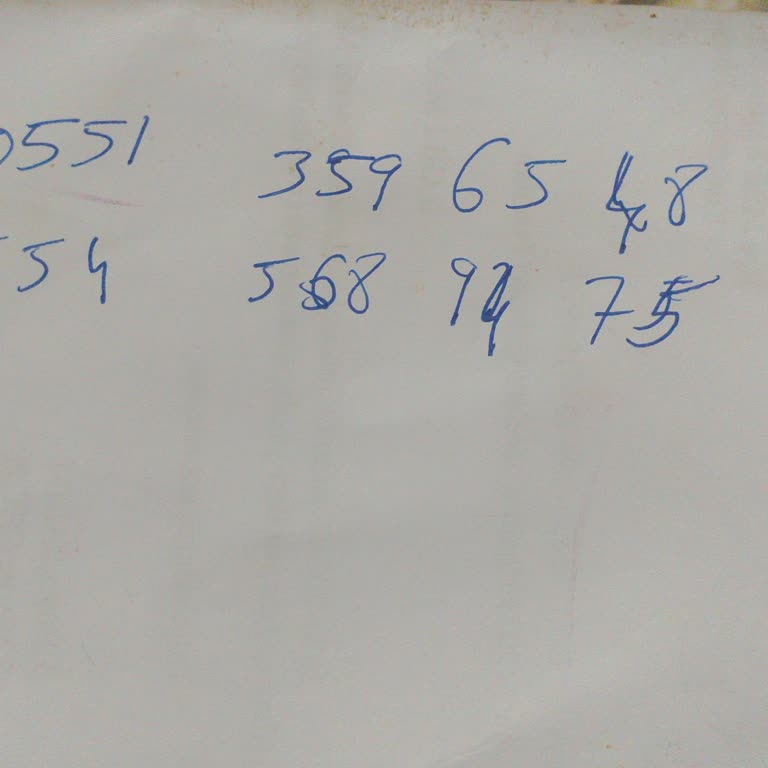 0551 359 65 48
554 568 94 75